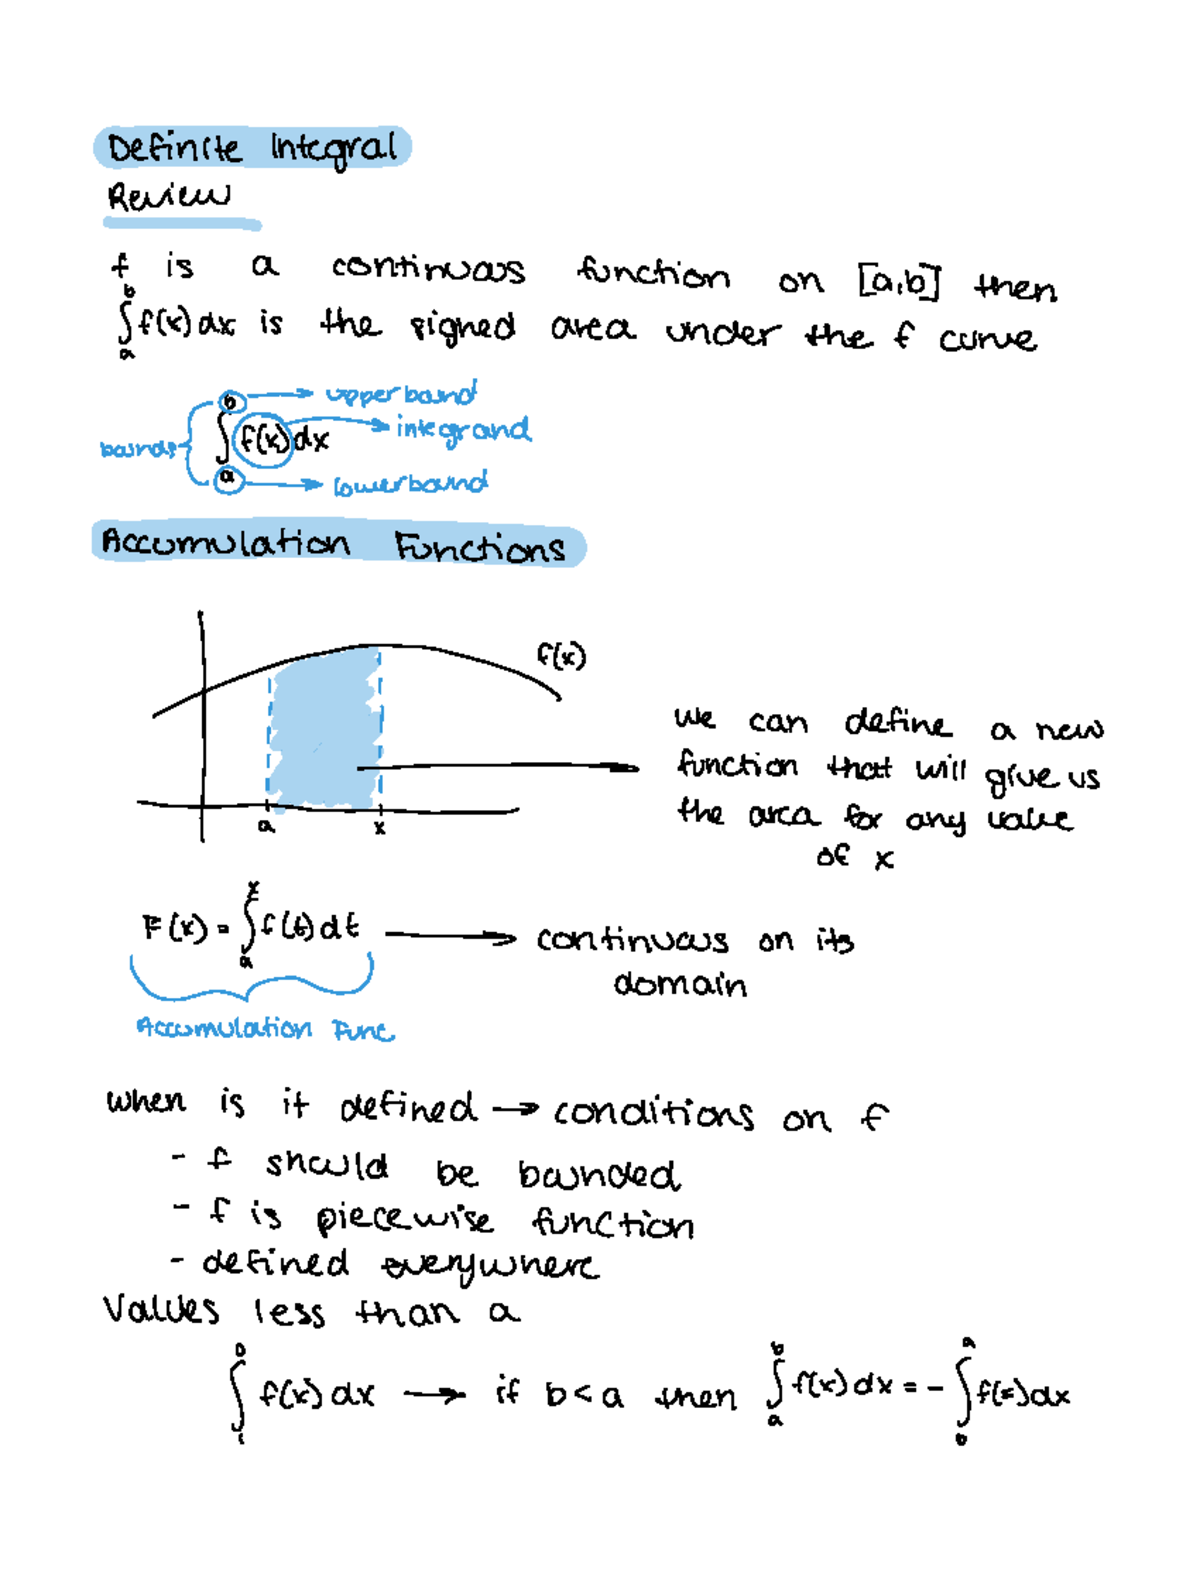 Definite Integral
Review
f is a continuous function on [a,b] then
∫_a^b f(x) dx is the signed area under the f curve
b → upper bound
bounds { ∫ f(x) dx → integrand
a → lowerbound
Accumulation Functions
f(x)
a x
we can define a new
function that will give us
the area for any value
of x
F(x) = ∫_a^x f(t) dt → continuous on its
domain
Accumulation Func
when is it defined → conditions on f
- f should be bounded
- f is piecewise function
- defined everywhere
Values less than a
∫_1^0 f(x) dx → if b < a then ∫_a^b f(x) dx = - ∫_b^a f(x) dx